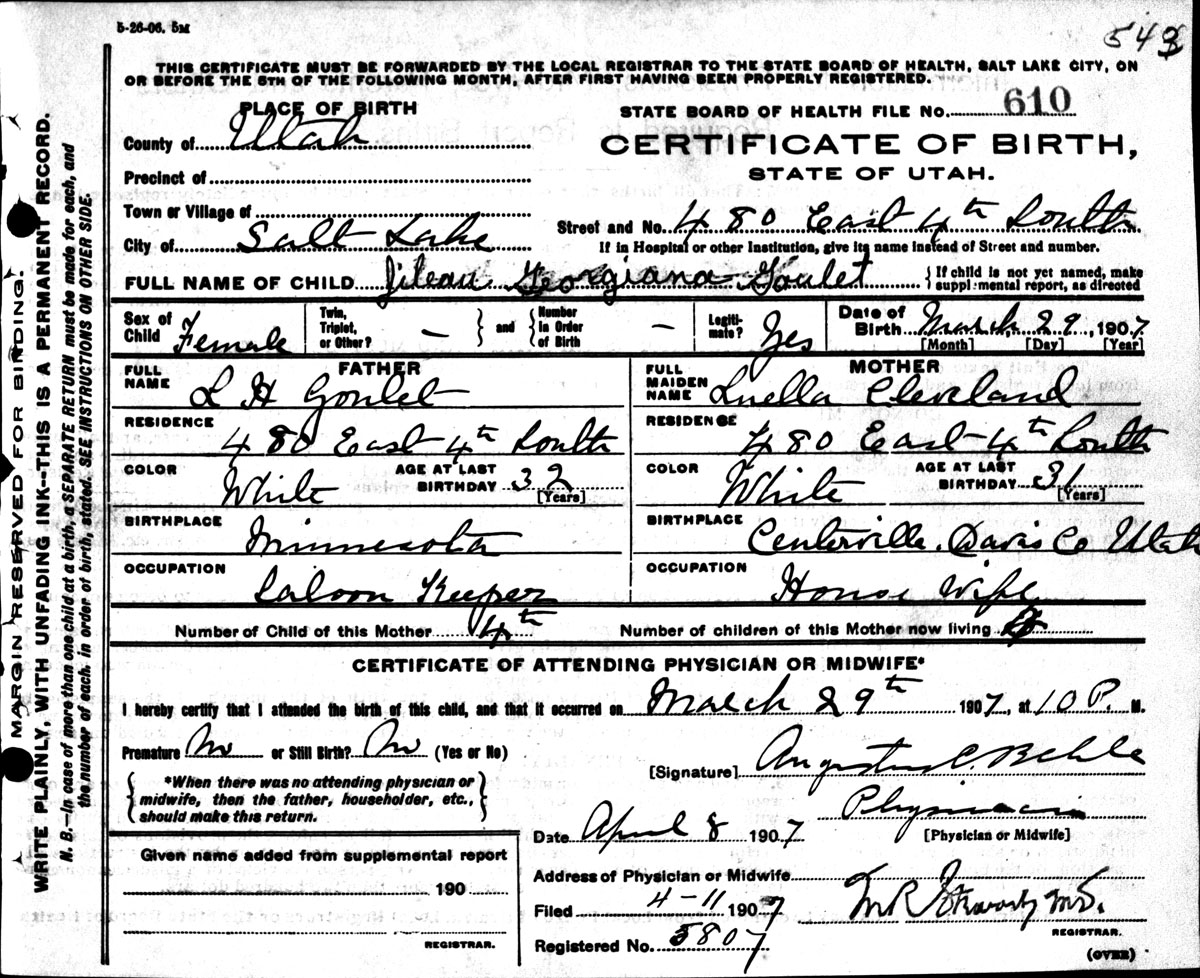 5-26-06. 5M
543
THIS CERTIFICATE MUST BE FORWARDED BY THE LOCAL REGISTRAR TO THE STATE BOARD OF HEALTH, SALT LAKE CITY, ON
OR BEFORE THE 5TH OF THE FOLLOWING MONTH, AFTER FIRST HAVING BEEN PROPERLY REGISTERED.
PLACE OF BIRTH
STATE BOARD OF HEALTH FILE No. 610
County of Utah
CERTIFICATE OF BIRTH,
STATE OF UTAH.
Precinct of
Town or Village of
Street and No. 480 East 4th South
City of Salt Lake
If in Hospital or other Institution, give its name instead of Street and number.
FULL NAME OF CHILD Jileau Georgiana Goulet
If child is not yet named, make
supplemental report, as directed
Sex of Child Female
Twin, Triplet, or Other? —
and
Number in Order of Birth —
Legitimate? Yes
Date of Birth March 29, 1907
[Month] [Day] [Year]
FATHER
MOTHER
FULL NAME L H Goulet
FULL MAIDEN NAME Luella Cleveland
RESIDENCE 480 East 4th South
RESIDENCE 480 East 4th South
COLOR White AGE AT LAST BIRTHDAY 32 [Years]
COLOR White AGE AT LAST BIRTHDAY 31 [Years]
BIRTHPLACE Minnesota
BIRTHPLACE Centerville, Davis Co Utah
OCCUPATION Saloon Keeper
OCCUPATION House Wife
Number of Child of this Mother 4th
Number of children of this Mother now living
CERTIFICATE OF ATTENDING PHYSICIAN OR MIDWIFE*
I hereby certify that I attended the birth of this child, and that it occurred on March 29th 1907, at 10 P. M.
Premature No or Still Birth? No (Yes or No)
[Signature] Augustus C. Behle
*When there was no attending physician or
midwife, then the father, householder, etc.,
should make this return.
Physician
[Physician or Midwife]
Date April 8 1907
Given name added from supplemental report
190
REGISTRAR.
Address of Physician or Midwife
Filed 4-11 1907
M.D.
REGISTRAR.
Registered No. 5807
(OVER)
MARGIN RESERVED FOR BINDING.
WRITE PLAINLY, WITH UNFADING INK--THIS IS A PERMANENT RECORD.
N. B.—In case of more than one child at a birth, a SEPARATE RETURN must be made for each, and
the number of each, in order of birth, stated. SEE INSTRUCTIONS ON OTHER SIDE.